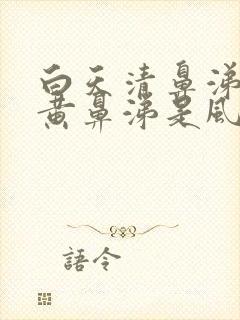 白天清鼻涕
黄鼻涕是風
語令